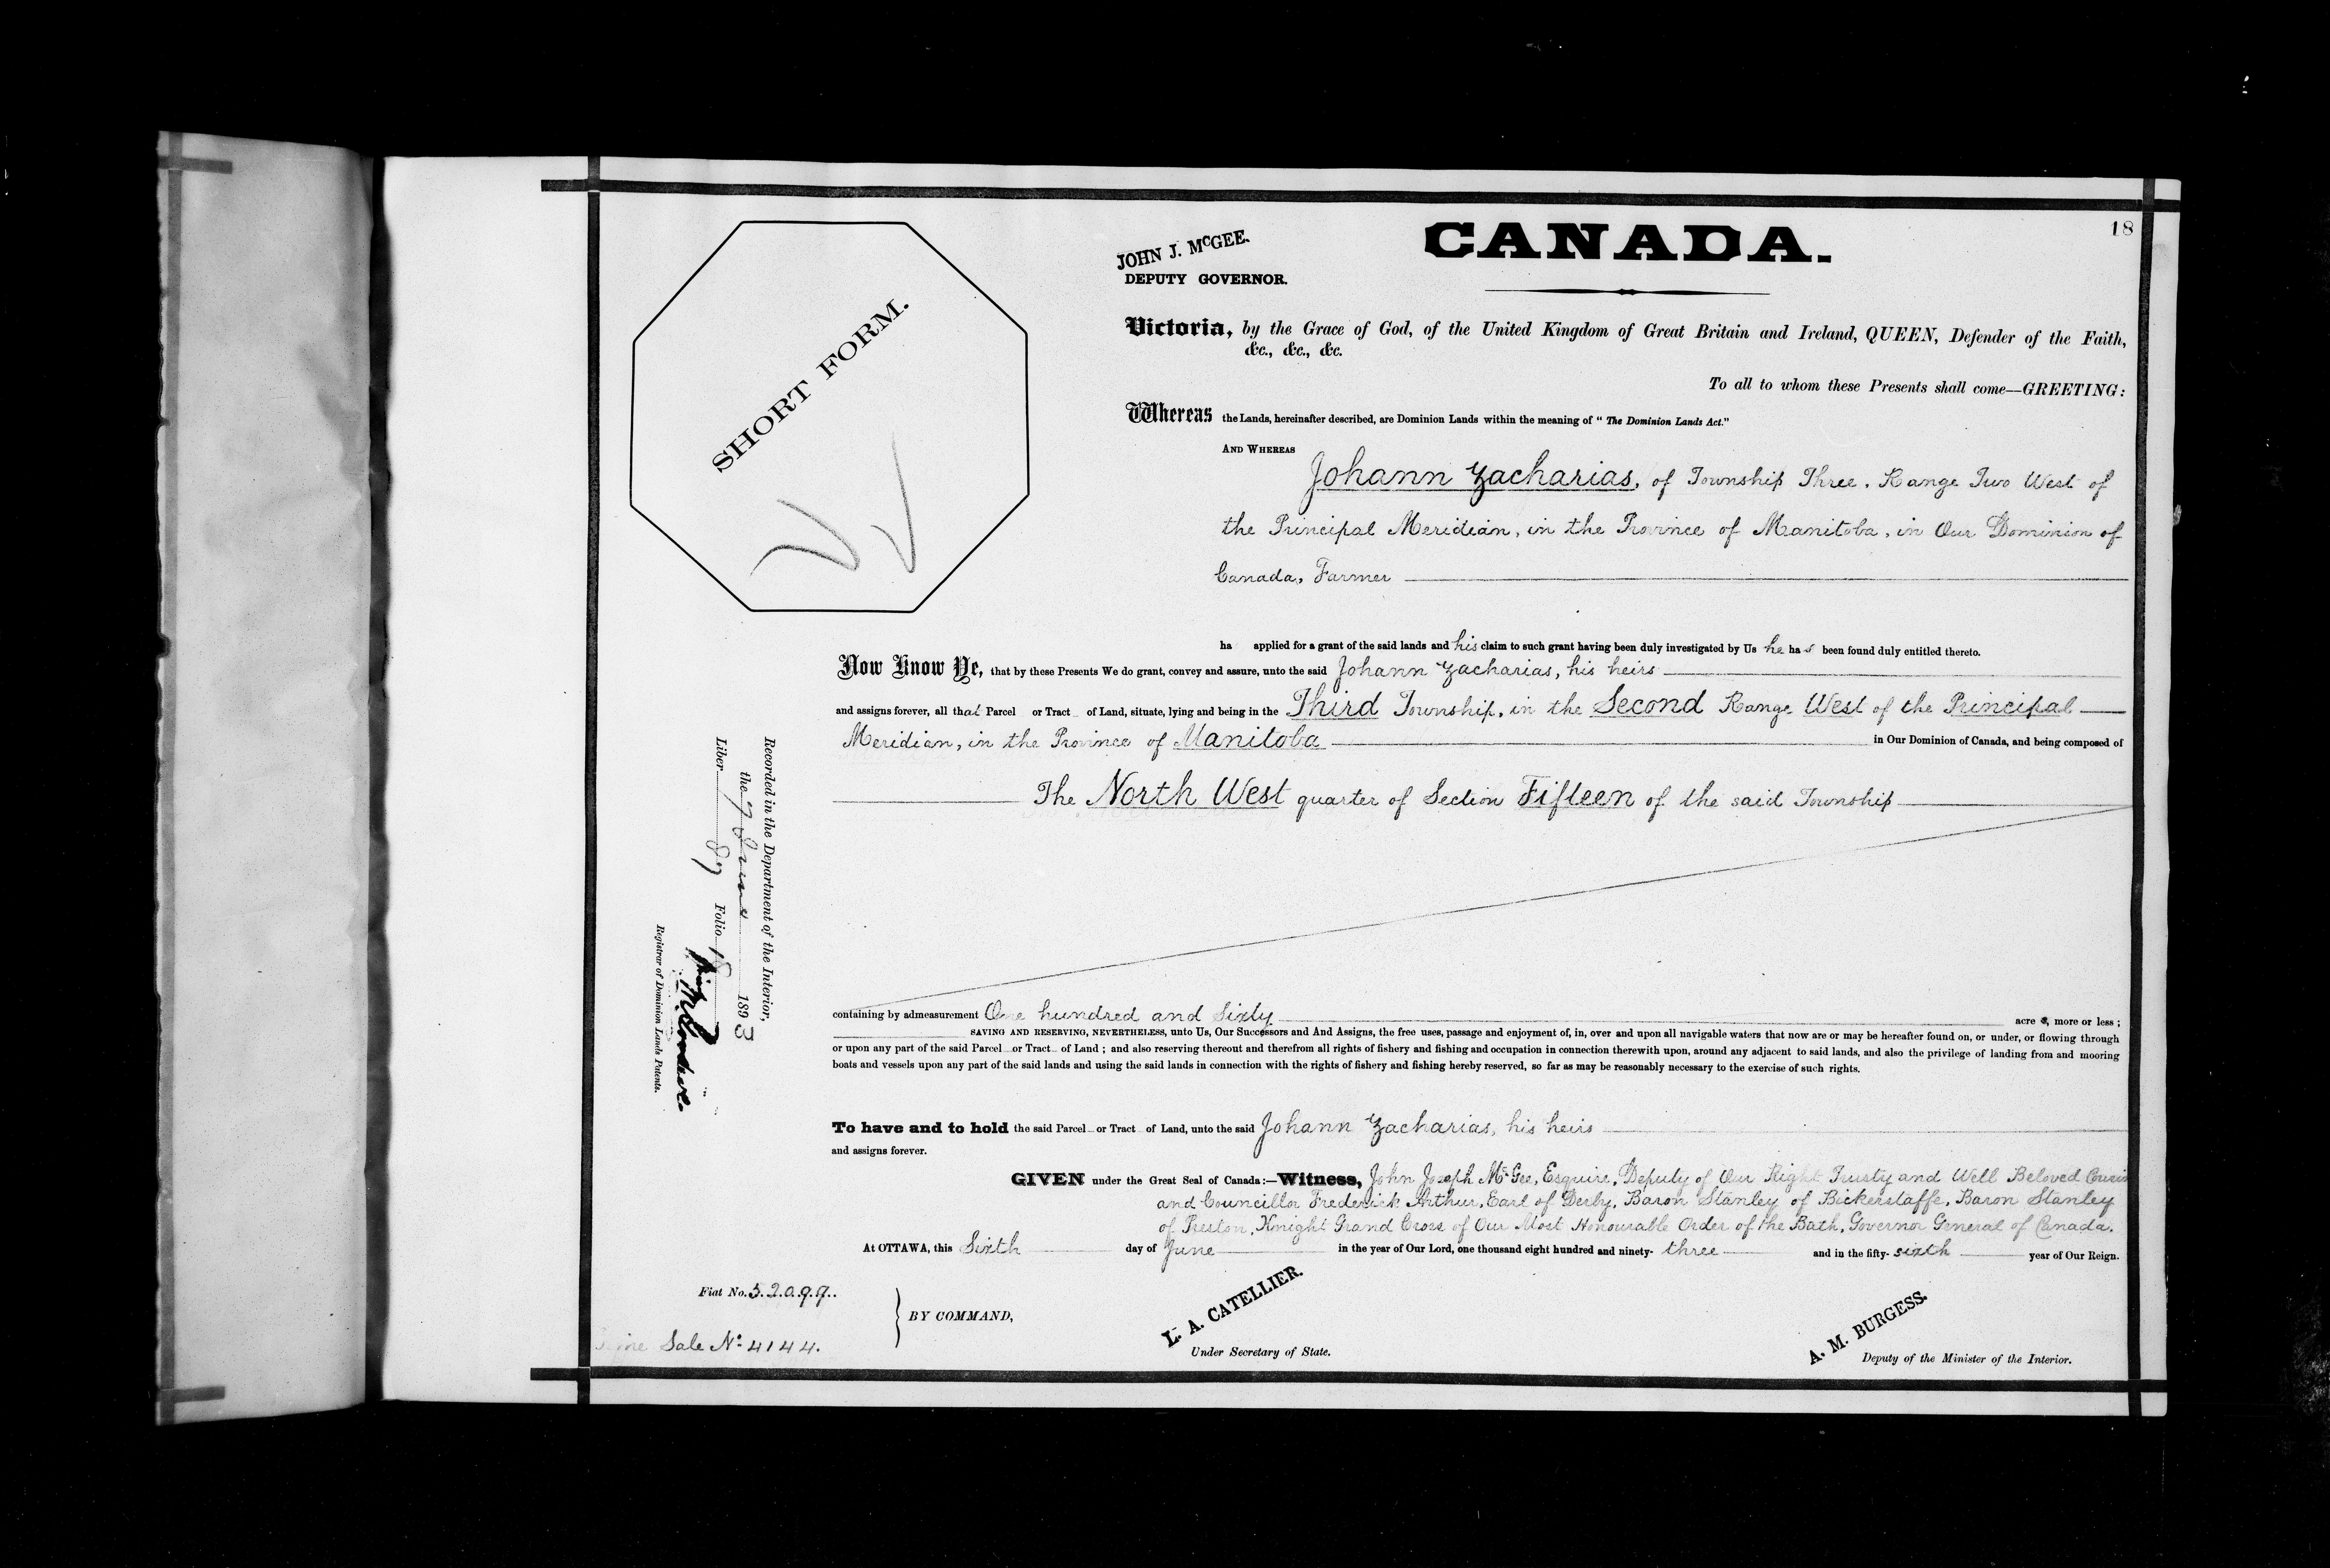 18
CANADA.
JOHN J. McGEE.
DEPUTY GOVERNOR.
SHORT FORM.
Victoria, by the Grace of God, of the United Kingdom of Great Britain and Ireland, QUEEN, Defender of the Faith,
&c., &c., &c.
To all to whom these Presents shall come—GREETING:
Whereas the Lands, hereinafter described, are Dominion Lands within the meaning of "The Dominion Lands Act."
AND WHEREAS
Johann Zacharias, of Township Three, Range Two West of
the Principal Meridian, in the Province of Manitoba, in Our Dominion of
Canada, Farmer
ha applied for a grant of the said lands and his claim to such grant having been duly investigated by Us he has been found duly entitled thereto.
Now Know Ye, that by these Presents We do grant, convey and assure, unto the said Johann Zacharias, his heirs
and assigns forever, all that Parcel or Tract of Land, situate, lying and being in the Third Township, in the Second Range West of the Principal
Meridian, in the Province of Manitoba in Our Dominion of Canada, and being composed of
The North West quarter of Section Fifteen of the said Township
containing by admeasurement One hundred and Sixty acres, more or less;
SAVING AND RESERVING, NEVERTHELESS, unto Us, Our Successors and And Assigns, the free uses, passage and enjoyment of, in, over and upon all navigable waters that now are or may be hereafter found on, or under, or flowing through
or upon any part of the said Parcel or Tract of Land; and also reserving thereout and therefrom all rights of fishery and fishing and occupation in connection therewith upon, around any adjacent to said lands, and also the privilege of landing from and mooring
boats and vessels upon any part of the said lands and using the said lands in connection with the rights of fishery and fishing hereby reserved, so far as may be reasonably necessary to the exercise of such rights.
To have and to hold the said Parcel or Tract of Land, unto the said Johann Zacharias, his heirs
and assigns forever.
GIVEN under the Great Seal of Canada:—Witness, John Joseph McGee, Esquire, Deputy of Our Right Trusty and Well Beloved Cousin
and Councillor Frederick Arthur, Earl of Derby, Baron Stanley of Bickerstaffe, Baron Stanley
of Preston, Knight Grand Cross of Our Most Honourable Order of the Bath, Governor General of Canada.
At OTTAWA, this Sixth day of June in the year of Our Lord, one thousand eight hundred and ninety-three and in the fifty-sixth year of Our Reign.
Recorded in the Department of the Interior,
the 7 June 1893
Liber 87 Folio 18
Registrar of Dominion Lands Patents.
Fiat No. 52097.
Sale No. 4144.
BY COMMAND,
L. A. CATELLIER.
Under Secretary of State.
A. M. BURGESS.
Deputy of the Minister of the Interior.